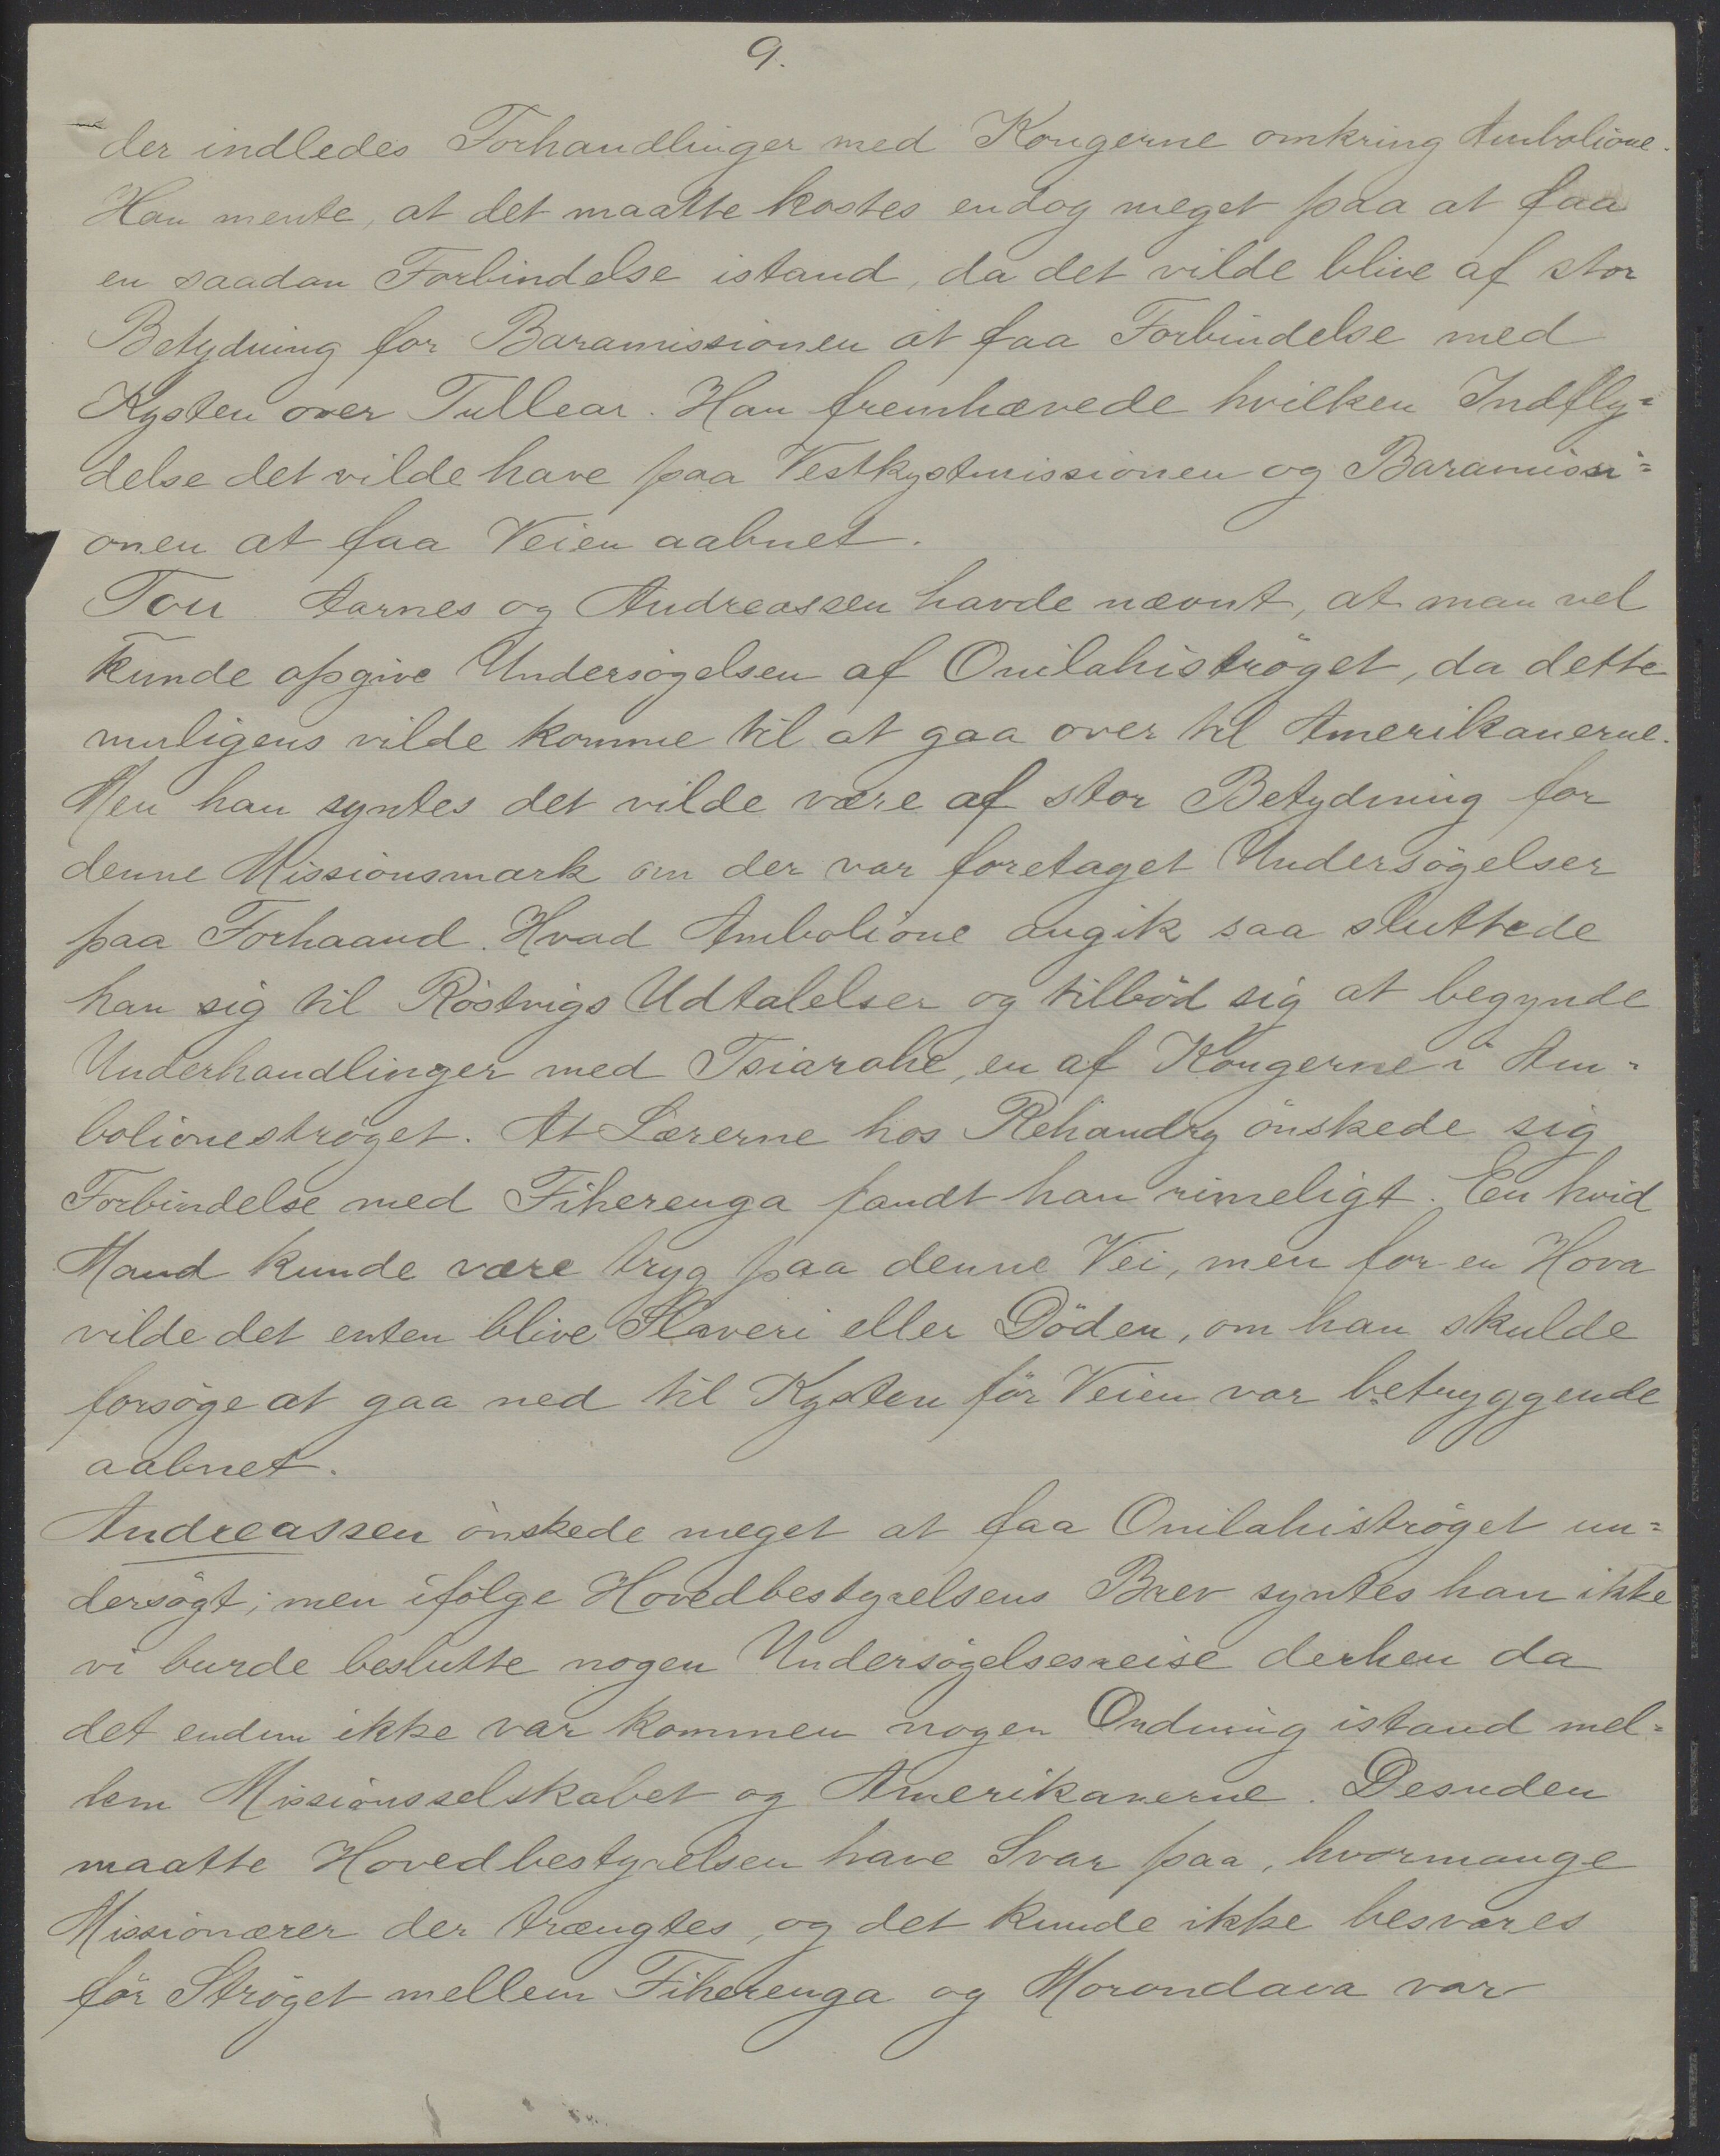 9.
der indledes Forhandlinger med Kongerne omkring Ambolione.
Han mente, at det maatte kostes endog meget paa at faa
en saadan Forbindelse istand, da det vilde blive af stor
Betydning for Baramissionen at faa Forbindelse med
Kysten over Tullear. Han fremhævede hvilken Indfly=
delse det vilde have paa Vestkystmissionen og Baramissi=
onen at faa Veien aabnet.
Tou. Aarnes og Andreassen havde nævnt, at man vel
kunde opgive Undersögelsen af Onilahiströget, da dette
muligens vilde komme til at gaa over til Amerikanerne.
Men han syntes det vilde være af stor Betydning for
denne Missionsmark om der var foretaget Undersögelser
paa Forhaand. Hvad Ambolione angik saa sluttede
han sig til Röstvigs Udtalelser og tilböd sig at begynde
Underhandlinger med Tsiarohe, en af Kongerne i Am=
bolioneströget. At Lærerne hos Rehandry önskede sig
Forbindelse med Fiherenga fandt han rimeligt. En hvid
Mand kunde være tryg paa denne Vei, men for en Hova
vilde det enten blive Slaveri eller Döden, om han skulde
forsöge at gaa ned til Kysten för Veien var betryggende
aabnet.
Andreassen önskede meget at faa Onilahiströget un=
dersögt; men ifölge Hovedbestyrelsens Brev syntes han ikke
vi burde beslutte nogen Undersögelsesreise derhen da
det endnu ikke var kommen nogen Ordning istand mel=
lem Missionsselskabet og Amerikanerne. Desuden
maatte Hovedbestyrelsen have Svar paa, hvormange
Missionærer der trængtes, og det kunde ikke besvares
för Ströget mellem Fiherenga og Morondava var